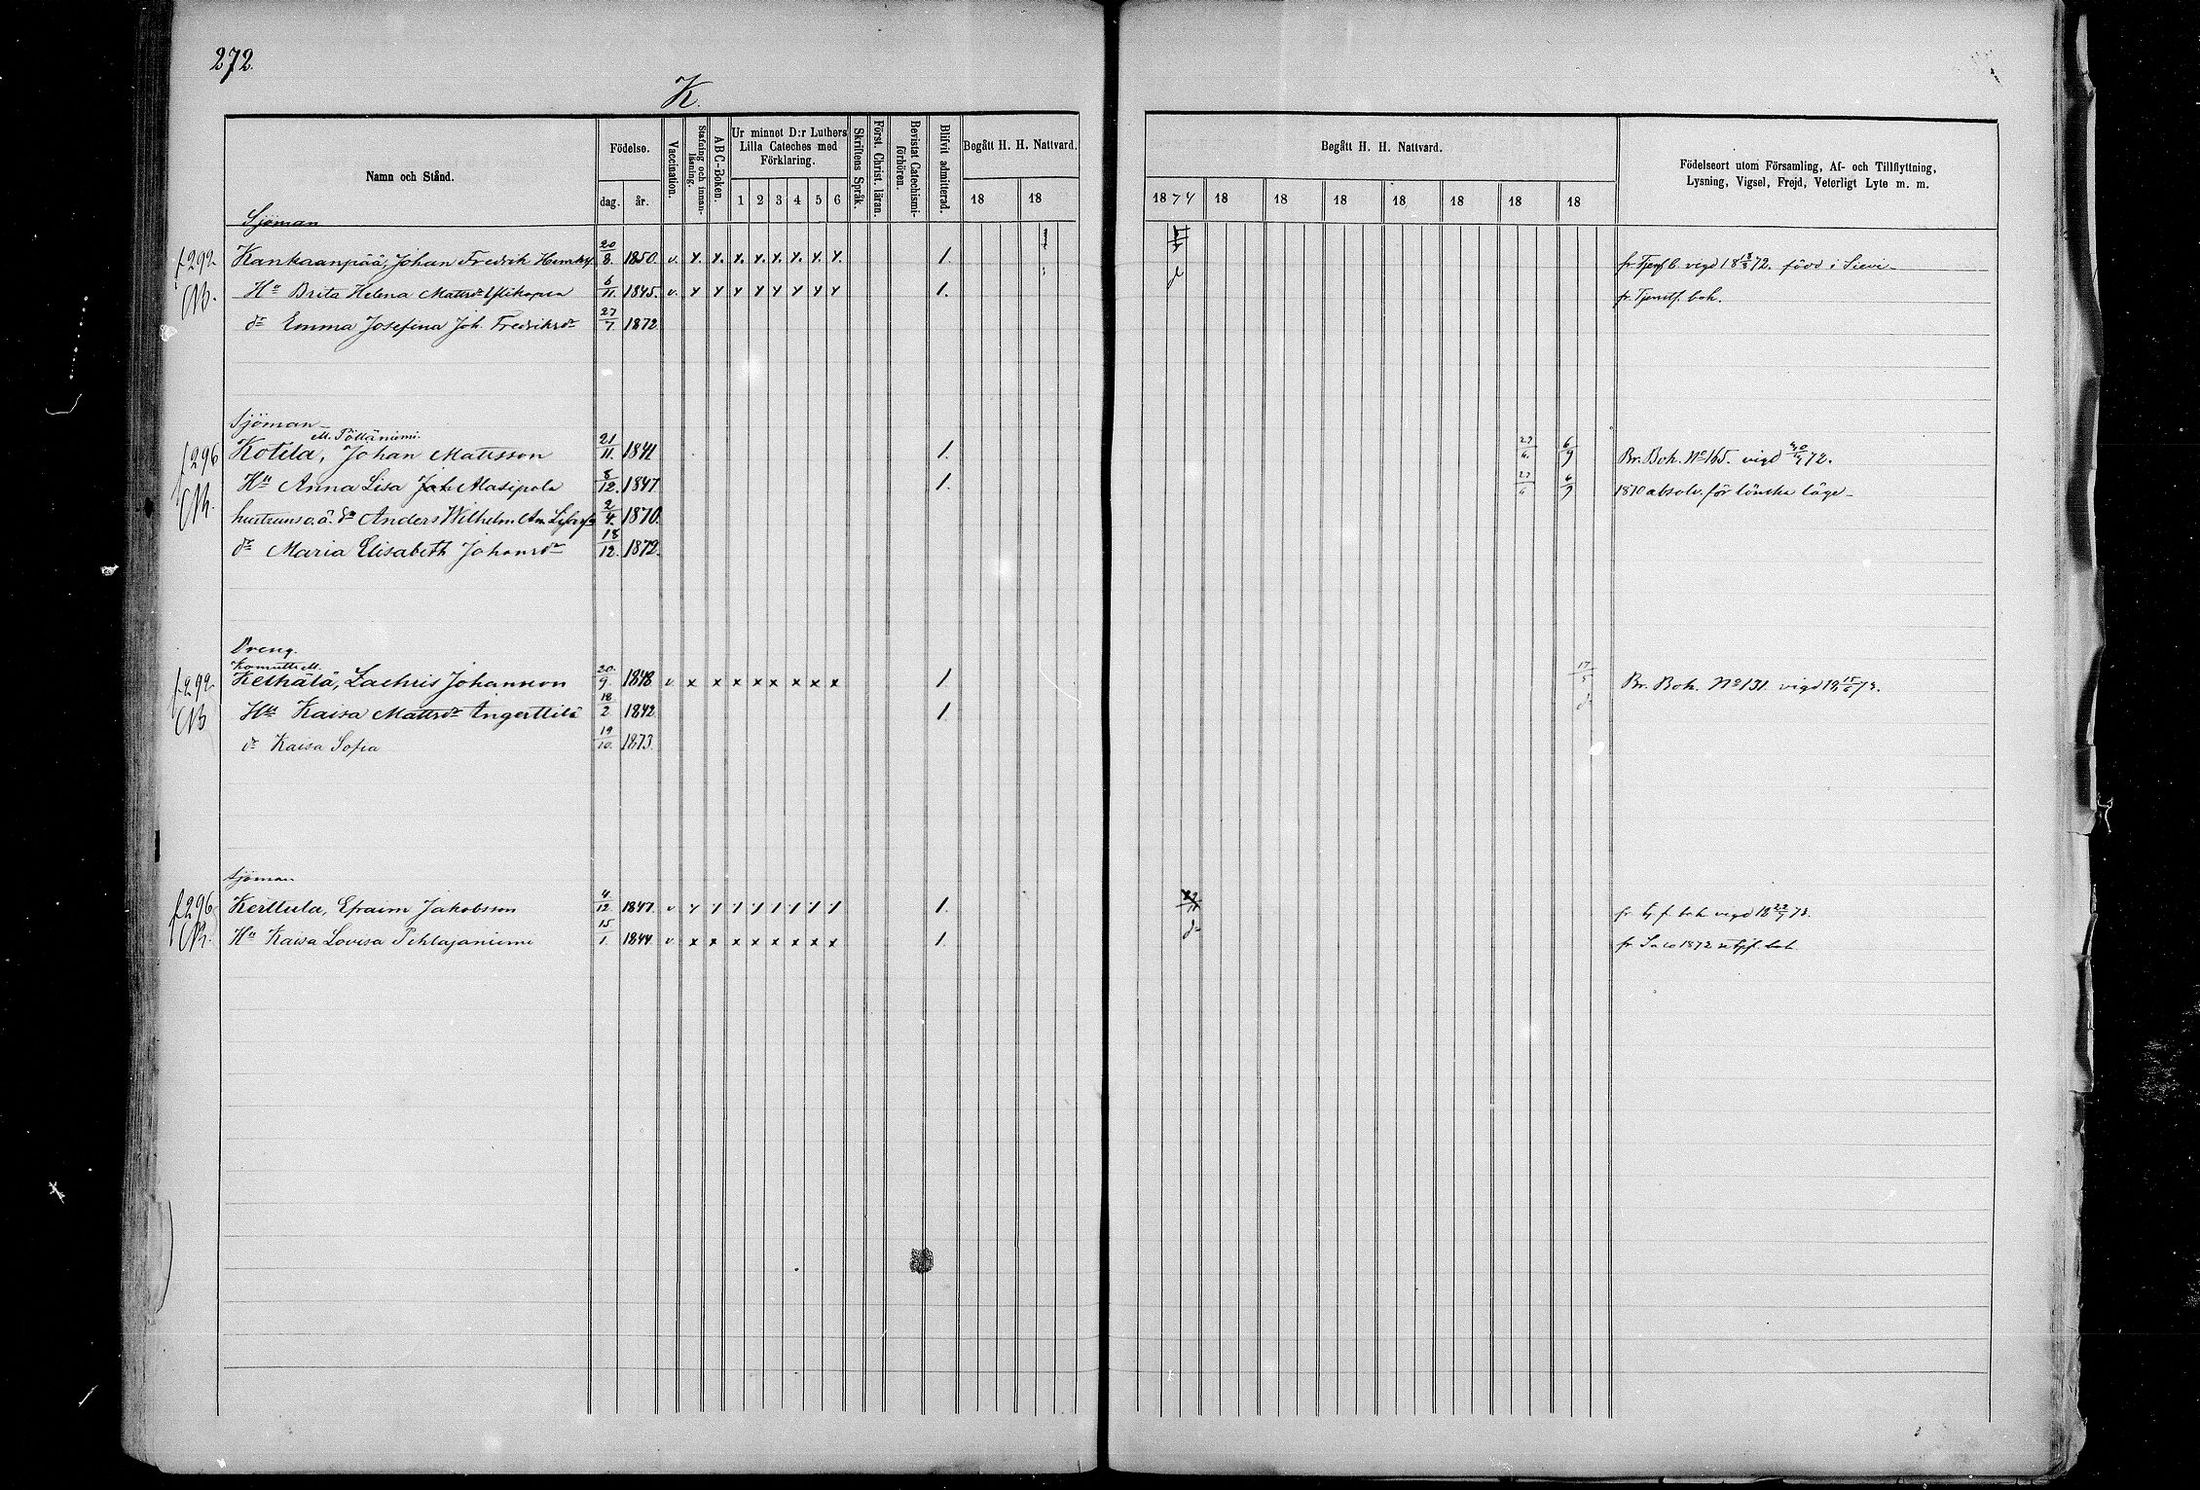 272.
K.
Namn och Stånd.
Födelse.
dag. år.
Vaccination.
Stafning och innanläsning.
ABC-Boken.
Ur minnet D:r Luthers Lilla Cateches med Förklaring.
1 2 3 4 5 6
Skriftens Språk.
Först. Christ. läran.
Bevistat Catechismiförhören.
Blifvit admitterad.
Begått H. H. Nattvard.
18 18
Begått H. H. Nattvard.
1874 18 18 18 18 18 18 18
Födelseort utom Församling, Af- och Tillflyttning,
Lysning, Vigsel, Frejd, Veterligt Lyte m. m.
Sjöman
f 292 Kankaanpää, Johan Fredrik 20/8. 1850. v. x. x. x. x. x. x. x. x. 1. vigd 18 72. född i Sievi
Hu Brita Helena Mattsdr 6/11. 1845. v. x x x x x x x x 1. fr. Tjenstf. boh.
dr Emma Josefina Joh. Fredriksdr 27/7. 1872
Sjöman
ell. Pölläniemi.
f 296 Kotila, Johan Mattsson 21/11. 1841 1. 6/9 Br. Boh. No 165. vigd 72.
Hu Anna Lisa Joh. Masipola 8/12. 1847. 1. 6/9 1870 absolv. för lönska läge
hustruns o.ä. Anders Wilhelm 2/4. 1870.
dr Maria Elisabeth Johansdr 18/12. 1872.
Dreng.
f 292 Keskälä, Zachris Johansson 20/9. 1848 v. x x x x x x x x 1 Br. Boh. No 131. vigd 18 15/6 73.
Hu Kaisa Mattsdr Angerttilä 18/2 1842 1
dr Kaisa Sofia 19/10. 1873.
Sjöman
f 296 Kerttula, Efraim Jakobsson 4/12 1847. v x x x x x x x x 1. boh. vigd 18 73.
Hu Kaisa Lovisa Pihlajaniemi 15/1. 1844. v. x x x x x x x x 1. fr. 1872 boh.